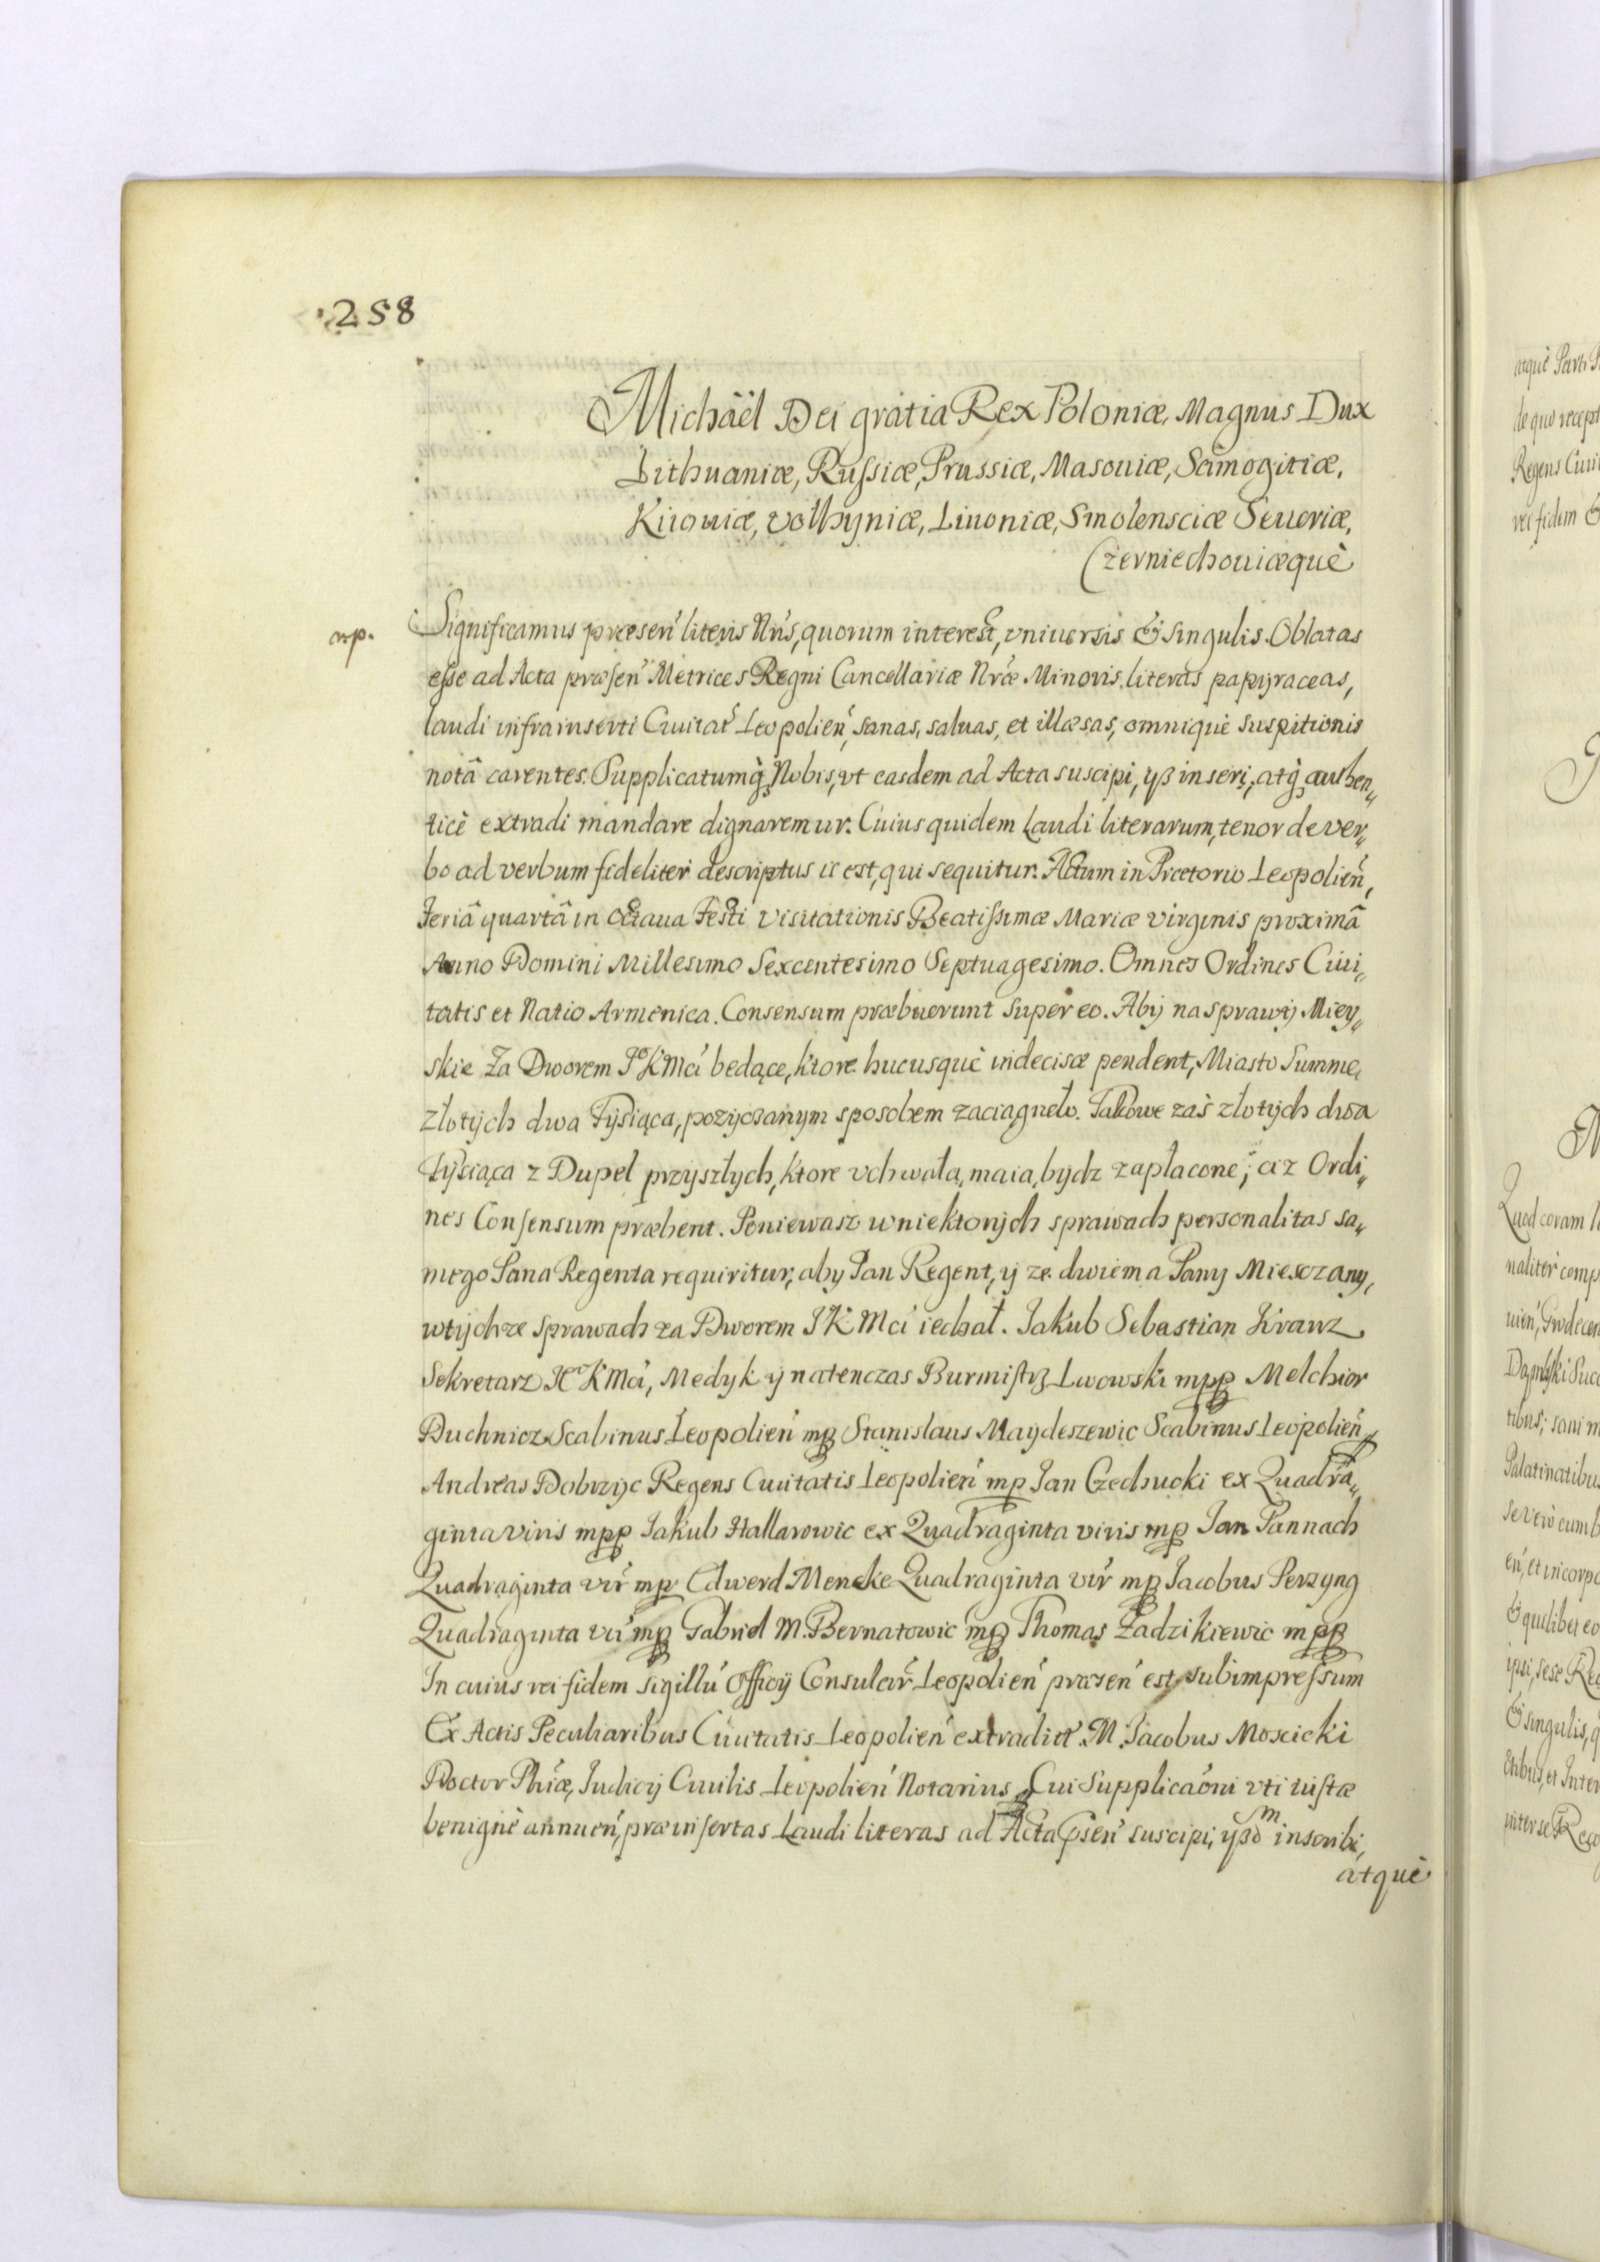 258
Michäél Dei gratia Rex Poloniæ, Magnus Dux
Lithuaniæ, Russiæ, Prussiæ, Masouiæ, Samogitiæ,
Kiiouiæ, Volhyniæ, Liuoniæ, Smolensciæ Seueriæ,
Czerniechouiæquè
Significamus præsen̄ literis Nr̄is, quorum interest, vniuersis & singulis. Oblatas
esse ad Acta præsen̄ Metrices Regni Cancellariæ Nr̄æ Minoris literas papyraceas,
laudi infrainserti Ciuitat̄ Leopolien̄, sanas, saluas, et illæsas, omniquè suspitionis
notâ carentes. Supplicatumq̀ Nobis, vt easdem ad Acta suscipi, ijs inseri, atq̀ authen„
ticè extradi mandare dignaremur. Cuius quidem Laudi literarum, tenor de ver„
bo ad verbum fideliter descriptus is est, qui sequitur. Actum in Prætorio Leopolien̄,
Feriâ quartâ in octaua Festi Visitationis Beatissimæ Mariæ virginis proximâ
Anno Domini Millesimo Sexcentesimo Septuagesimo. Omnes Ordines Ciui„
tatis et Natio Armenica. Consensum præbuerunt super eo. Aby na sprawy Miey„
skie Za Dworem Jº K Mci będące, ktore hucusquè indecisæ pendent, Miasto Summę
złotych dwa Tysiąca, pozyczanym sposobem zaciągneło. Takowe zaś złotych dwa
Tysiąca z Dupel przyszłych, ktore vchwalą, maią bydz zapłacone, az Ordi„
nes Consensum præbent. Poniewasz w niektorych sprawach personalitas sa„
mego Pana Regenta requiritur, aby Pan Regent, y ze dwiema Pany Miesczany,
wtychze sprawach za Dworem J K Mci iechał. Jakub Sebastian Kranz
Sekretarz Jº K Mci, Medyk y natenczas Burmistrz Lwowski mpp Melchior
Buchnicz Scabinus Leopolien̄ mp Stanislaus Maydeszewic Scabinus Leopolien̄
Andreas Dobrzyc Regens Ciuitatis Leopolien̄ mp Jan Czechucki ex Quadra„
ginta viris mpp Jakub Hallarowic ex Quadraginta viris mp Jan Pannach
Quadraginta vir̄ mp Edwerd Mencke Quadraginta vir̄ mp Jacobus Perzyng
Quadraginta vir̄ mp Gabriel M. Bernatowic mp Thomas Zadzikiewic mpp
In cuius rei fidem sigillū Officij Consular̄ Leopolien̄ præsen̄ est subimpressum
Ex Actis Peculiaribus Ciuitatis Leopolien̄ extradit̄. M. Jacobus Moscicki
Doctor Phīæ, Judicij Ciuilis Leopolien̄ Notarius Cui Supplicāoni vti iustæ
benignè annuen̄, præinsertas Laudi literas ad Acta psen̄ suscipi, ijsdᵐ inscribi,
atquè